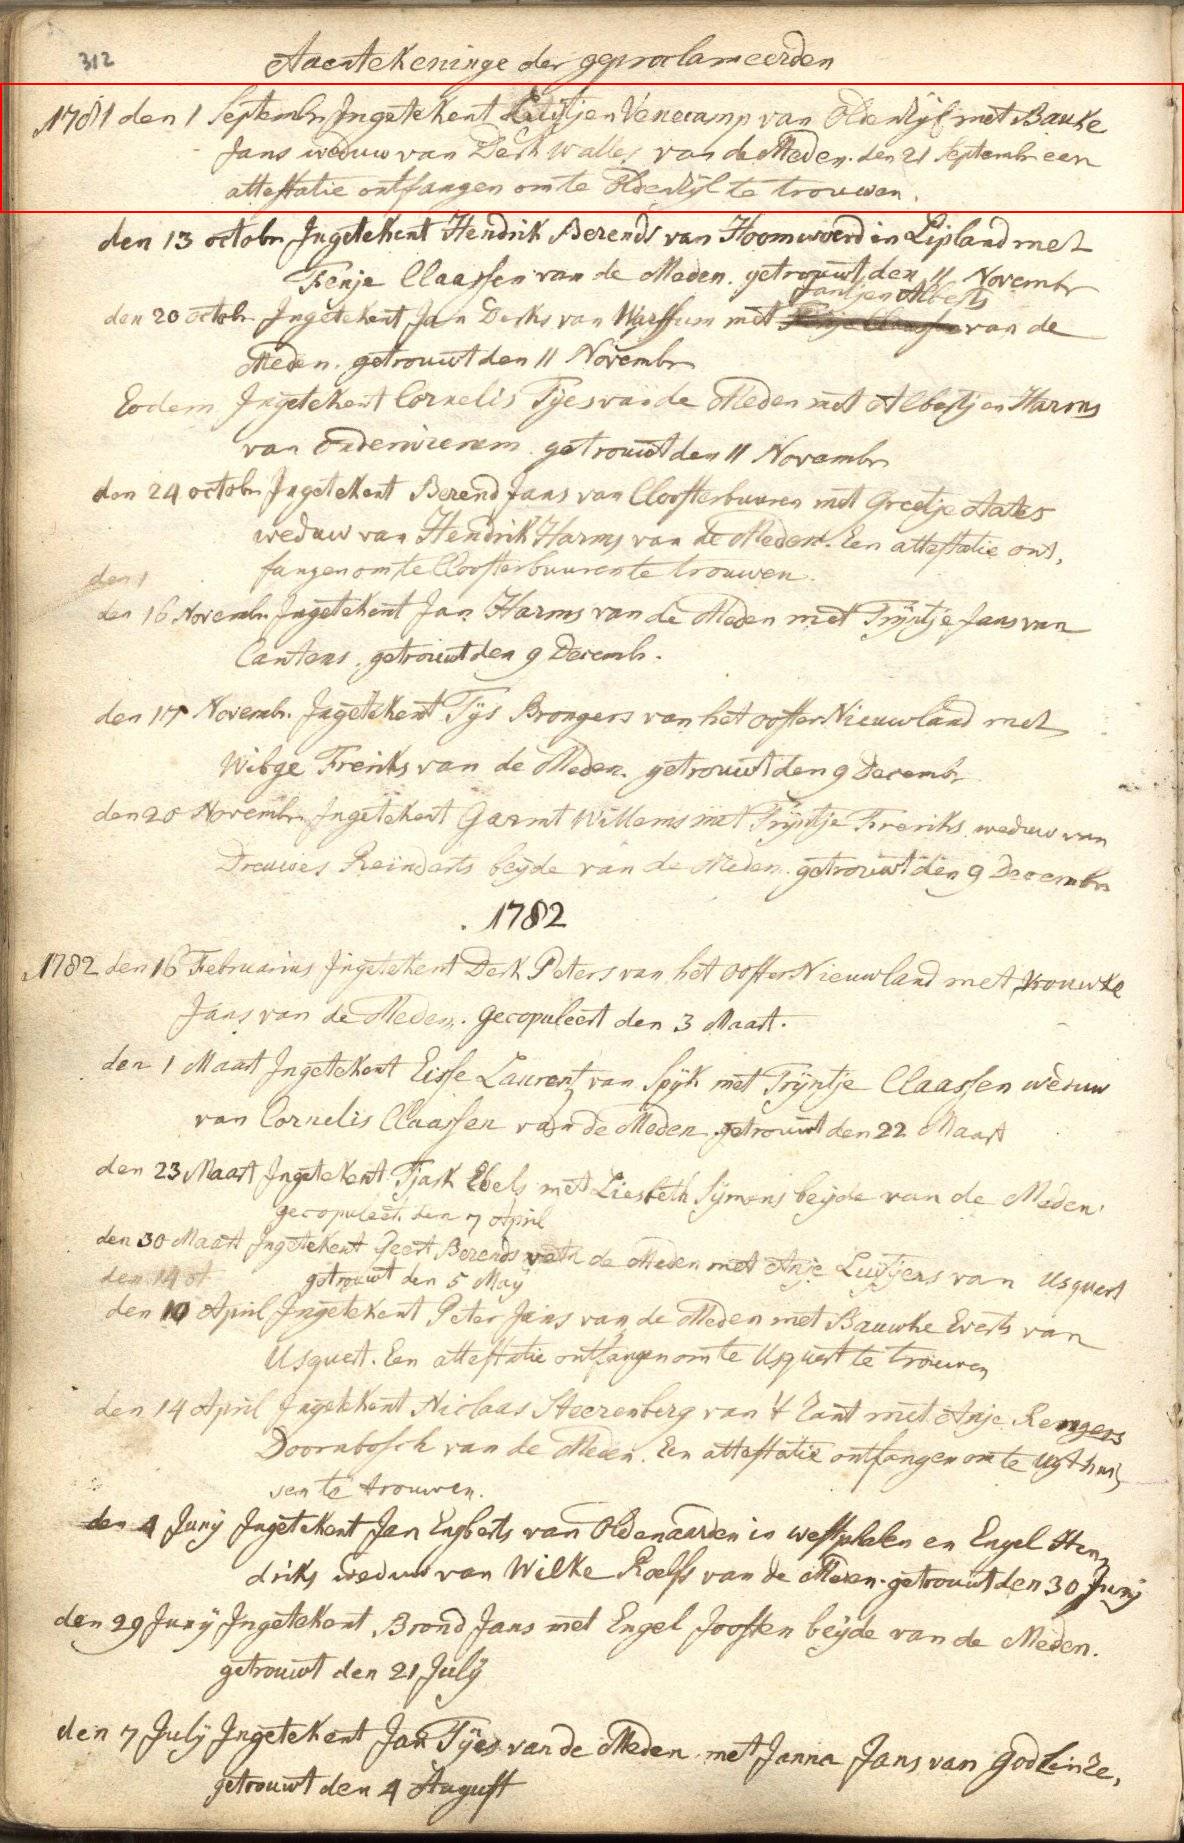 312
Aantekeninge der geproclameerden
1781 den 1 Septembr Ingetekent Luitjen Venecamp van Oldenzijl met Bauke
Jans weduw van Derk Walles van de Meden. den 21 Septembr een
attestatie ontfangen om te Oldenzijl te trouwen.
den 13 octobr Ingetekent Hendrik Berends van Hoomwoerd in Lipland met
Trenje Claassen van de Meden. getrouwt den 11 Novembr
Jantjen Alberts
den 20 octobr Ingetekent Jan Derks van Warffum met van de
Meden. getrouwt den 11 Novembr
Eodem Ingetekent Cornelis Tijes van de Meden met Albertjen Harms
van Onderwierem getrouwt den 11 Novembr
den 24 octobr Ingetekent Berend Jans van Cloosterbuuren met Greetje Aates
weduw van Hendrik Harms van de Meden. Een attestatie ont,
fangen om te Cloosterbuuren te trouwen.
den 1
den 16 Novembr Ingetekent Jan Harms van de Meden met Trijntje Jans van
Cantens. getrouwt den 9 Decembr.
den 17 Novembr. Ingetekent Tijs Brongers van het ooster Nieuwland met
Wibge Freriks van de Meden. getrouwt den 9 Decembr
den 20 Novembr Ingetekent Garmt Willems met Trijntje Freriks weduw van
Drewes Reinderts beijde van de Meden. getrouwt den 9 Decembr
1782
1782 den 16 Februarius Ingetekent Derk Peters van het ooster Nieuwland met Vrouwke
Jans van de Meden. Gecopuleert den 3 Maart.
den 1 Maart Ingetekent Eisse Laurentz van Spijk met Trijntje Claassen weduw
van Cornelis Claassen van de Meden getrouwt den 22 Maart
den 23 Maart Ingetekent Tjark Ebels met Liesbeth Sijmens beijde van de Meden.
gecopuleert den 7 April
den 30 Maart Ingetekent Geert Berends van de Meden met Anje Luitjers van Usquert
den 14 getrouwt den 5 Maij
den 10 April Ingetekent Peter Jans van de Meden met Bauwke Everts van
Usquert. Een attestatie ontfangen om te Usquert te trouwen
den 14 April Ingetekent Niclaas Steerenberg van 't Zant met Anje Remgers
Doornbosch van de Meden. Een attestatie ontfangen om te Uythui,
sen te trouwen.
den 4 Junij Ingetekent Jan Engberts van Oldenaarden in westphalen en Engel Hen,
driks weduw van Wilke Roelfs van de Meden. getrouwt den 30 Junij
den 29 Junij Ingetekent Brond Jans met Engel Joosten beijde van de Meden.
getrouwt den 21 Julij
den 7 Julij Ingetekent Jan Tijes van de Meden met Janna Jans van Godlinze,
getrouwt den 4 August